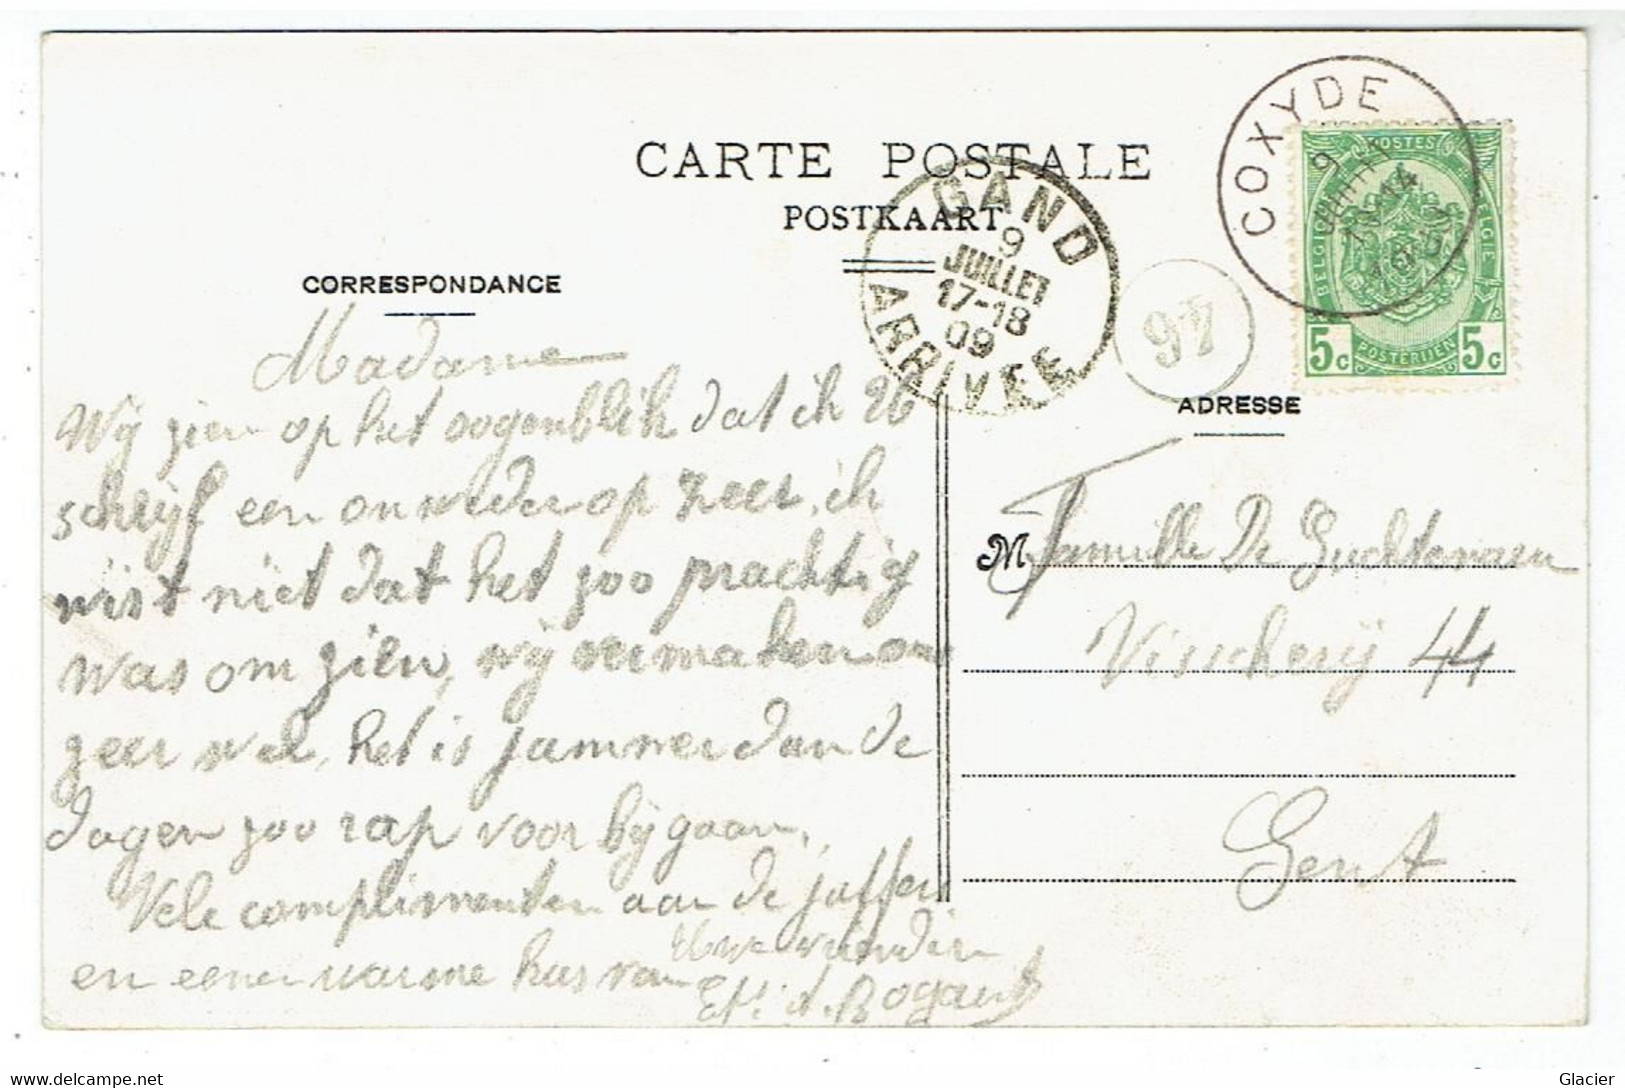 CARTE POSTALE
POSTKAART
CORRESPONDANCE
COXYDE
9
JUILLET
GAND
9
JUILLET
17-18
09
ARRIVEE
97
POSTES
BELGIQUE
BELGIE
5c POSTERIJEN 5c
ADRESSE
Madame
Wij zien op het oogenblik dat ik
schrijf een onweder op zee, ik
wist niet dat het zoo prachtig
was om zien, wij vermaken ons
zeer wel, het is jammer dan de
dagen zoo rap voor bij gaan,
Vele complimenten aan de jaffers
en eenen warme kus van
Uwe vriendin
A. Bogaert
M Famille De Guchtenaere
Visscherij 44
Gent
delcampe.net
Glacier